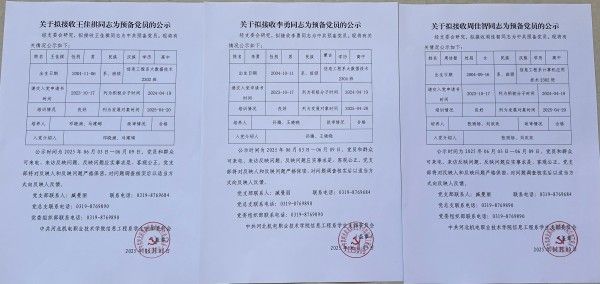 关于拟接收王佳祺同志为预备党员的公示
经支委会研究，拟接收王佳祺同志为中共预备党员，现将有
关情况公示如下：
姓名 王佳祺 性别 男 民族 汉族 学历 高中
出生日期 2004-11-06 系、班级 信息工程系大数据技术
2302班
递交入党申请书
时间 2023-10-17 列为积极分子时间 2024-04-19
培训情况 良好 列为发展对象时间 2025-04-20
培养人 政审情况 合格
入党介绍人
公示时间为2025年06月03日—06月09日，党员和群众
可来电、来访反映问题，反映问题应实事求是，客观公正。党支
部将对反映人和反映问题严格保密，对问题调查核实后以适当方
式向反映人反馈。
党支部联系人：臧曼丽 联系电话：0319-8769684
党总支联系电话：0319-8769890
党委组织部联系电话：0319-8769890
中共河北机电职业技术学院信息工程系学生支部委员会
2025年06月03日
关于拟接收李勇同志为预备党员的公示
经支委会研究，拟接收李勇同志为中共预备党员，现将有关
情况公示如下：
姓名 李勇 性别 男 民族 汉族 学历 高中
出生日期 2004-10-11 系、班级 信息工程系大数据技术
2304班
递交入党申请书
时间 2023-10-17 列为积极分子时间 2024-04-19
培训情况 良好 列为发展对象时间 2025-04-20
培养人 政审情况 合格
入党介绍人
公示时间为2025年06月03日—06月09日，党员和群众
可来电、来访反映问题，反映问题应实事求是，客观公正。党支
部将对反映人和反映问题严格保密，对问题调查核实后以适当方
式向反映人反馈。
党支部联系人：臧曼丽 联系电话：0319-8769684
党总支联系电话：0319-8769890
党委组织部联系电话：0319-8769890
中共河北机电职业技术学院信息工程系学生支部委员会
关于拟接收周佳智同志为预备党员的公示
经支委会研究，拟接收周佳智同志为中共预备党员，现将有
关情况公示如下：
姓名 周佳智 性别 男 民族 汉族 学历 高中
出生日期 系、班级 信息工程系计算机应用
技术2302班
递交入党申请书
时间 2023-10-17 列为积极分子时间 2024-04-19
培训情况 良好 列为发展对象时间 2025-04-20
培养人 政审情况 合格
入党介绍人
公示时间为2025年06月03日—06月09日，党员和群众
可来电、来访反映问题，反映问题应实事求是，客观公正。党支
部将对反映人和反映问题严格保密，对问题调查核实后以适当方
式向反映人反馈。
党支部联系人：臧曼丽 联系电话：0319-8769684
党总支联系电话：0319-8769890
党委组织部联系电话：0319-8769890
中共河北机电职业技术学院信息工程系学生支部委员会
2025年06月03日